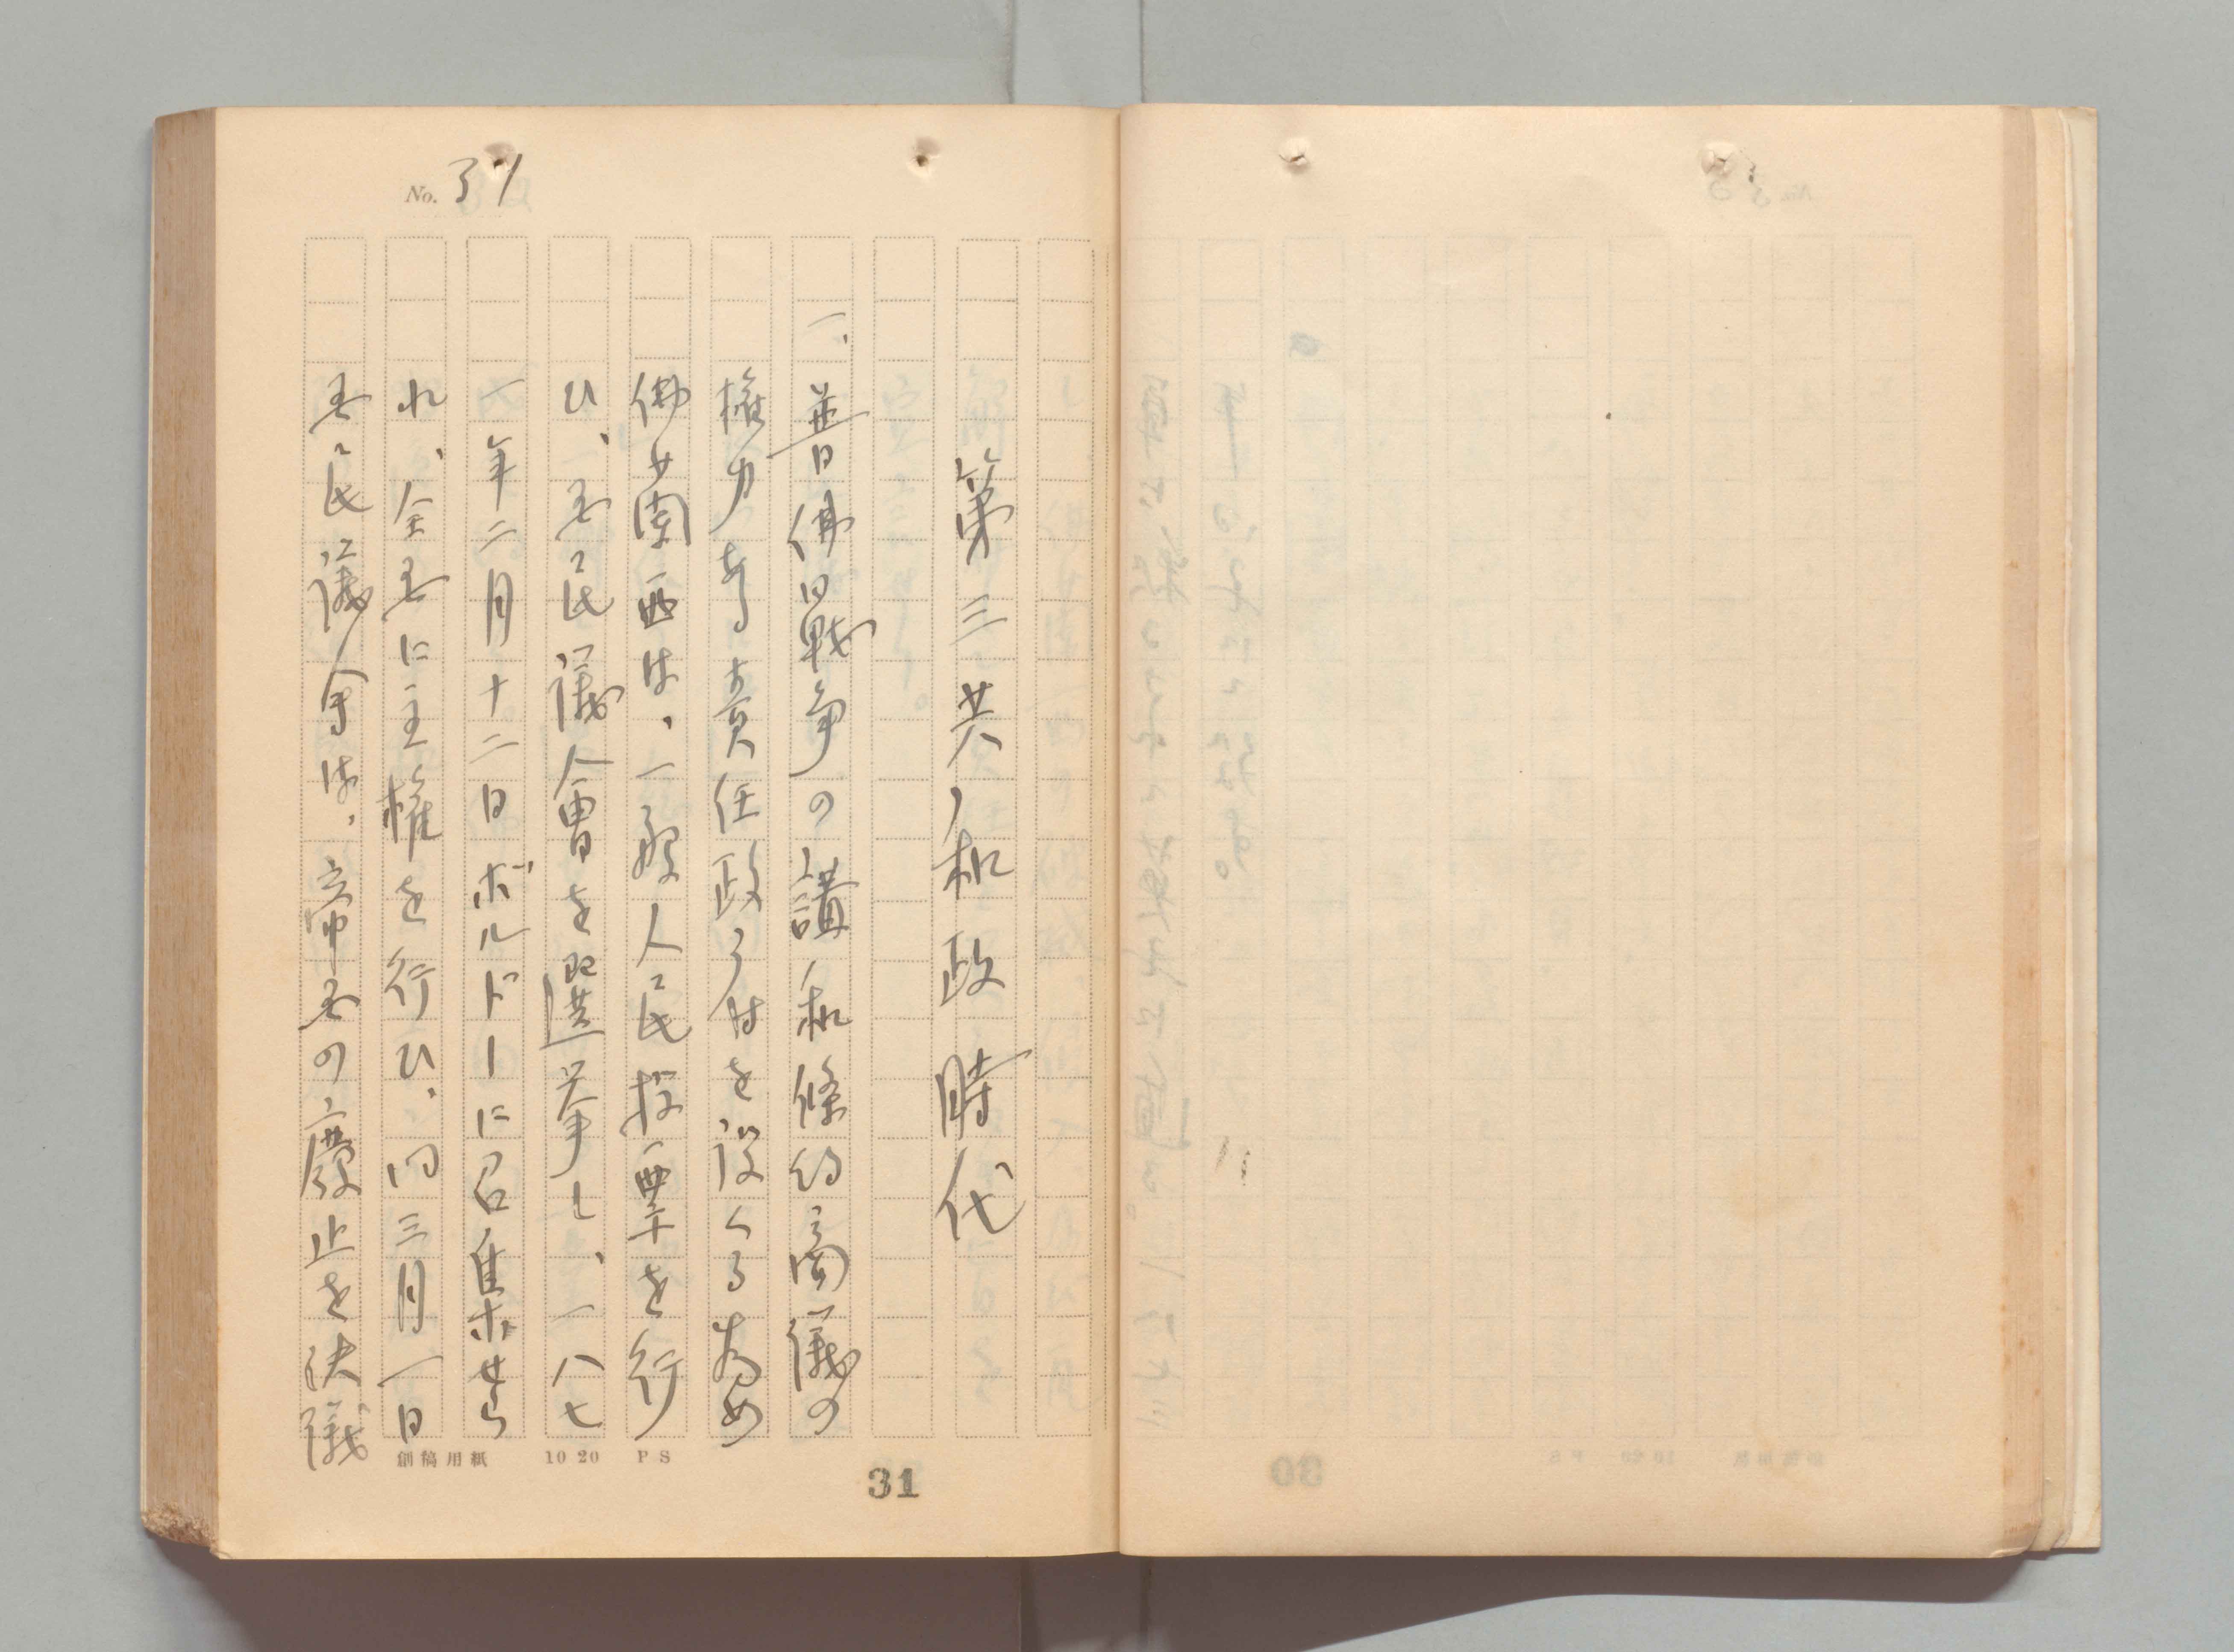 No. 31
第三共和政時代
一、普佛戰争の講和條約商議の
権力ある責任政府を設くる為め
佛蘭西は、一般人民投票を行
ひ、国民議會を選挙し、一八七
一年二月十二日ボルドーに召集せら
れ、全国に主権を行ひ、同三月一日
国民議会は、帝国の廢止を決議
創稿用紙 10 20 P S
31